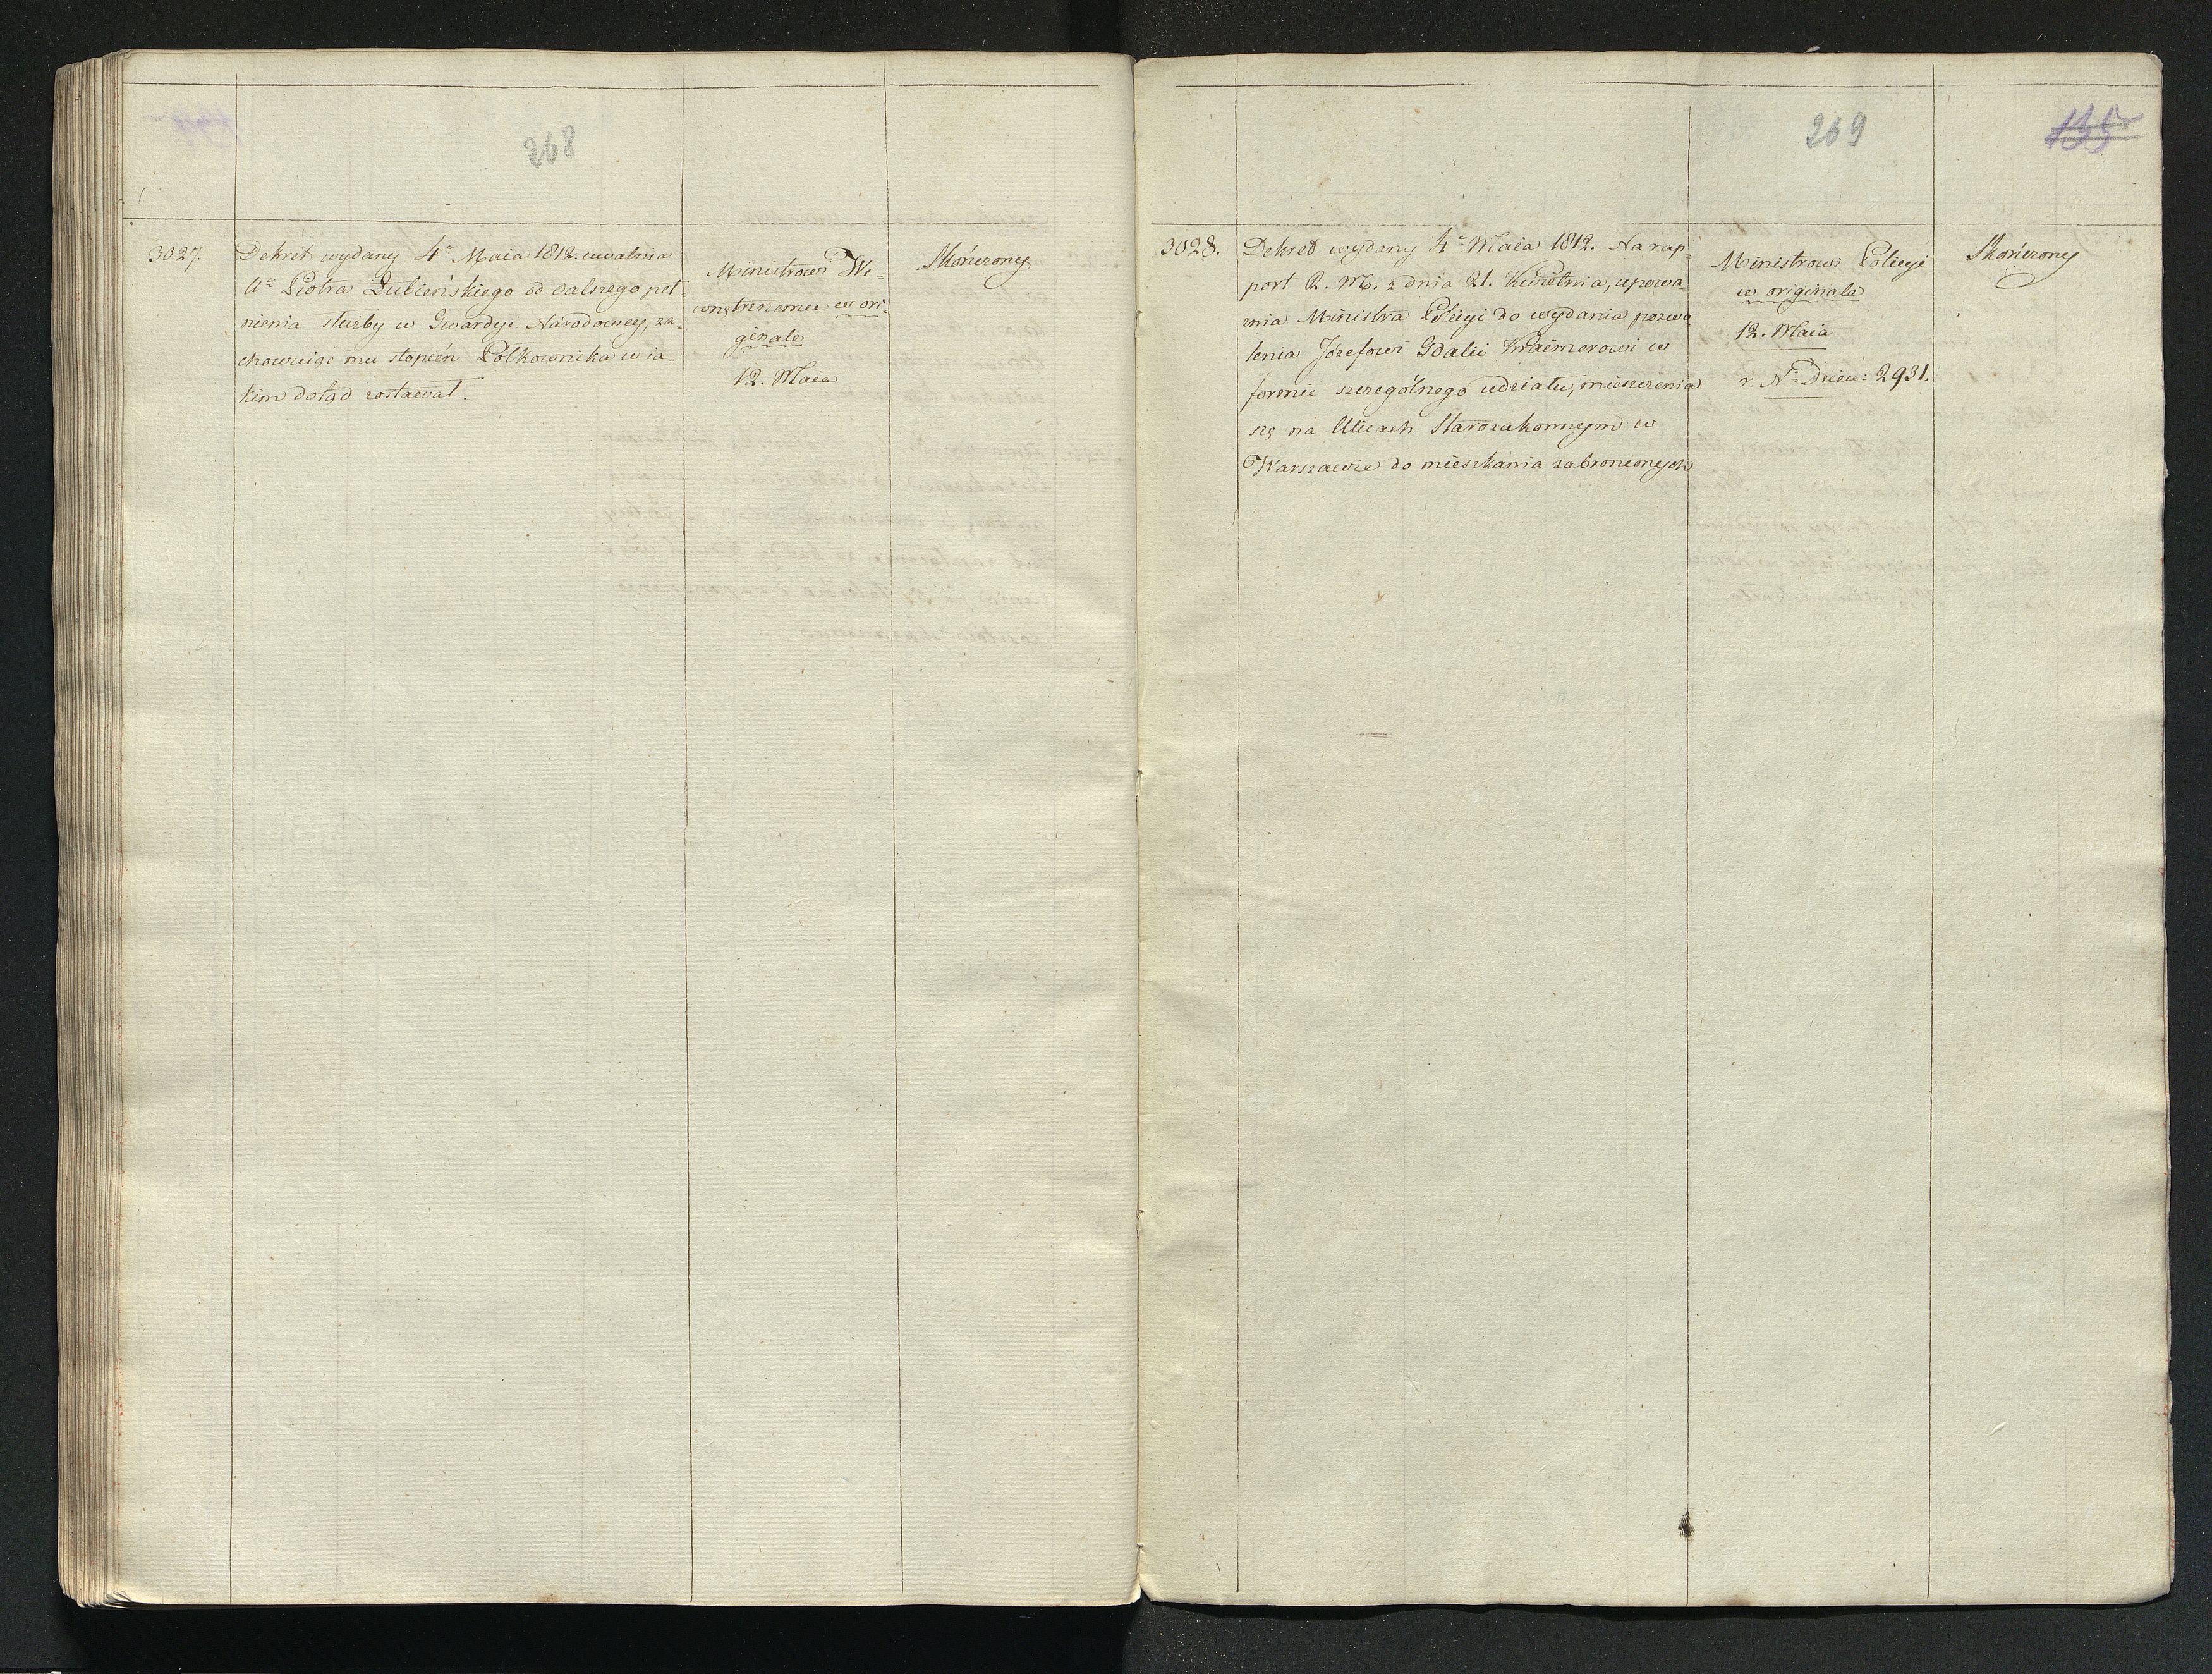 268
3027.
Dekret wydany 4º Maia 1812. uwalnia
Uº Piotra Łubieńskiego od dalszego peł-
nienia służby w Gwardyi Narodowey, za-
chowuiąc mu stopień Półkownika w ia-
kim dotąd zostawał.
Ministrowi We-
wnętrznemu w ori-
ginale
12. Maia
Skończony
269
135
3028.
Dekret wydany 4º Maia 1812. Na rap-
port R. M. z dnia 21. Kwietnia, upowa-
żnia Ministra Policyi do wydania pozwo-
lenia Józefowi Gdalii Kraimerowi w
formie szczególnego udziału, mieszczenia
się na Ulicach Starozakonnym w
Warszawie do mieszkania zabronionych
Ministrowi Policyi
w originale
12. Maia
v. Nº Dzien: 2931.
Skończony